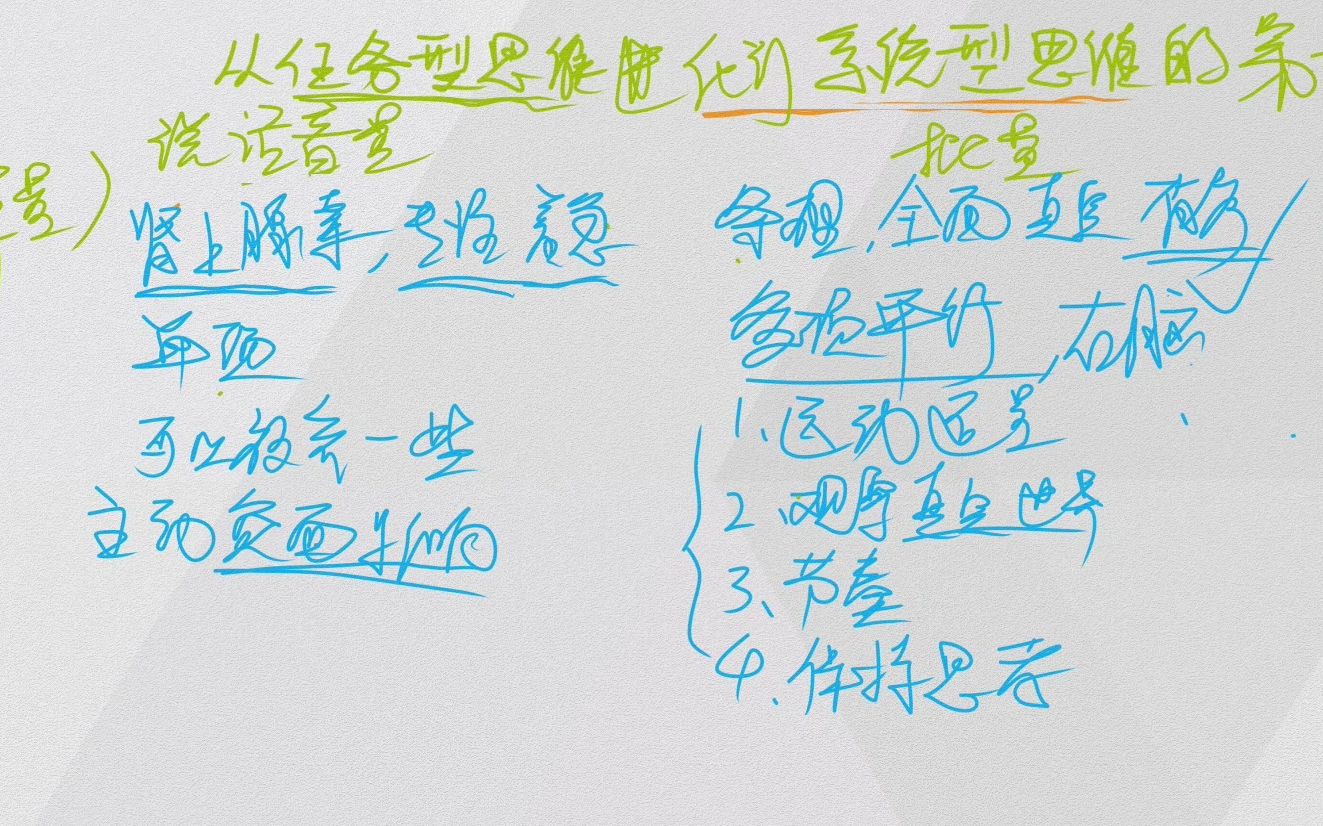 从任务型思维进化到系统型思维的第一
说话音量
肾上腺素,专治着急
单项
可以放弃一些
主动负面影响
条理,全面真实有序
多项平行,右脑
1、运动适量
2、观察真实世界
3、节奏
4、保持思考